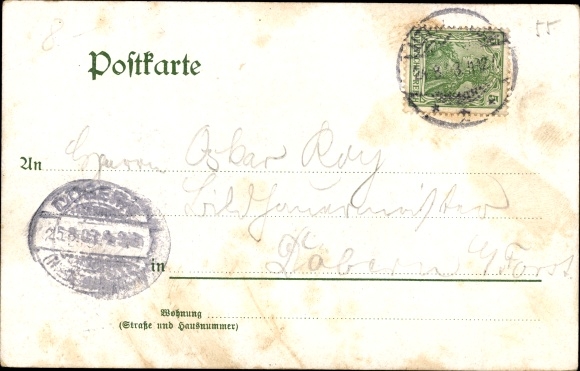 55
Postkarte
An Herrn Oskar Roy
Bildhauermeister
in Döbern N/Forst
Wohnung
(Straße und Hausnummer)
DÖBERN